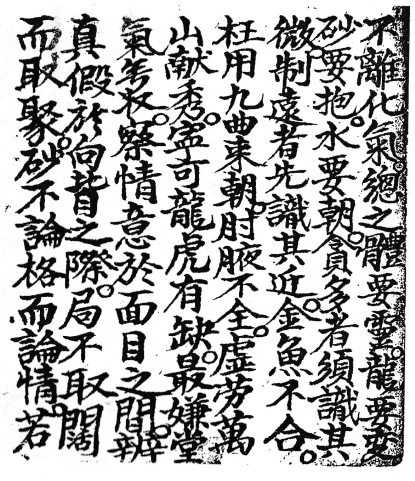 不離化氣。總之體要靈。龍要变
砂要抱。水要朝。貪多者須識其
微。制遠者先識其近。金魚不合。
枉用九曲来朝。肘腋不全。虛劳萬
山献秀。寧可龍虎有缺。最嫌堂
氣無收。察情意於面目之間。辨
真假於向背之際。局不取闊
而取聚。砂不論格而論情。若